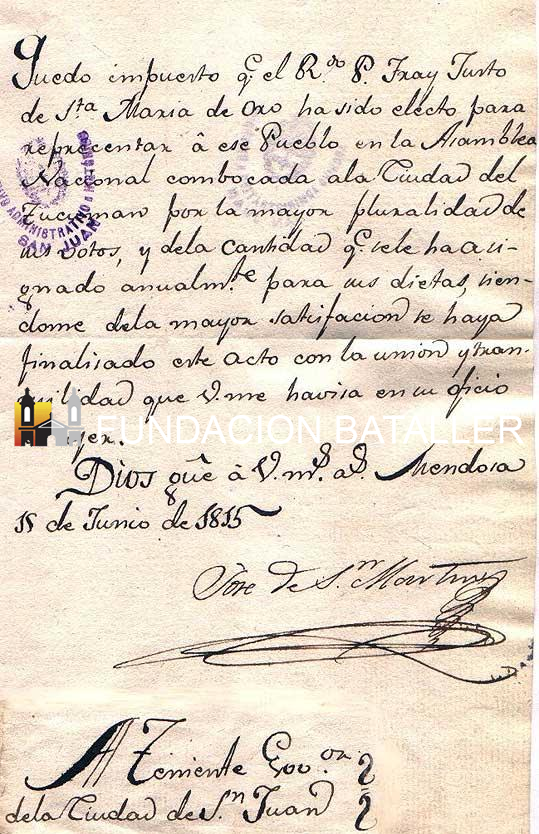 Quedo impuesto q.e el R.do P. Fray Justo
de S.ta Maria de Oro ha sido electo para
reprecentar â ese Pueblo en la Asamblea
Nacional combocada ala Ciudad del
Tucuman por la mayor pluralidad de
sus Votos, y dela cantidad q.e sele ha asig-
gnado anualm.te para sus dietas, sien-
dome dela mayor satisfacion se haya
finalisado este acto con la union y tran-
quilidad que V. me havisa en su oficio
FUNDACION BATALLER
Dios gûe â V. m.s a.s Mendosa
de Junio de 1815
Jose de S.n Martin
Al Teniente Gov.or
dela Ciudad de S.n Juan
SAN JUAN